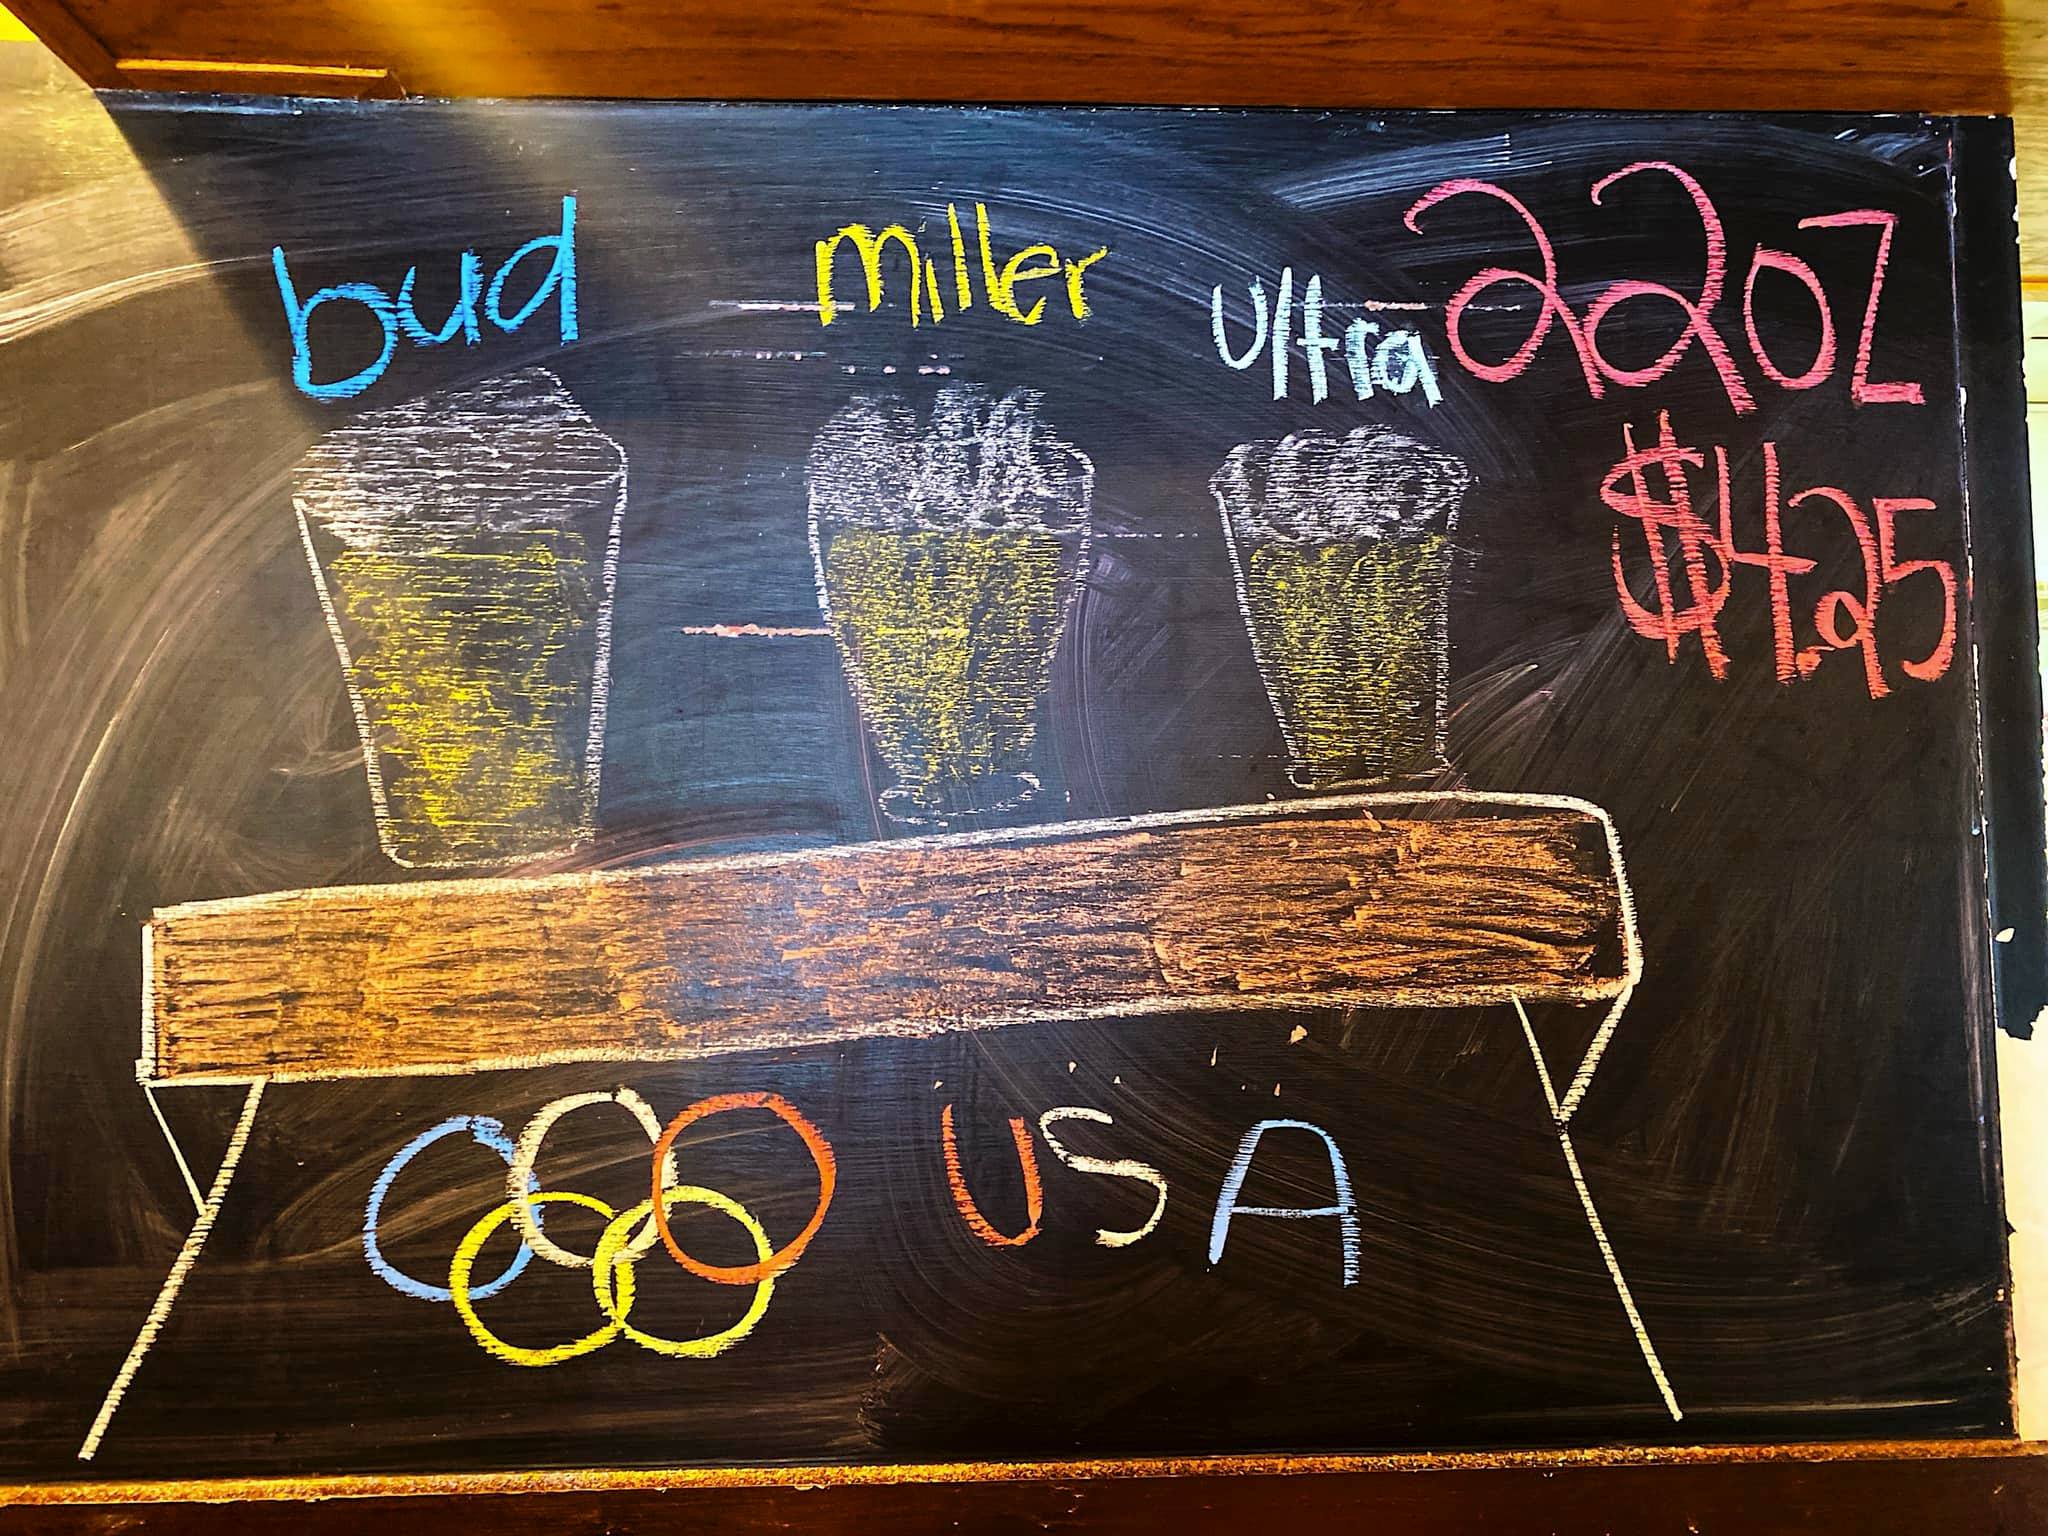 bud miller ultra 22oz
$4.25
USA